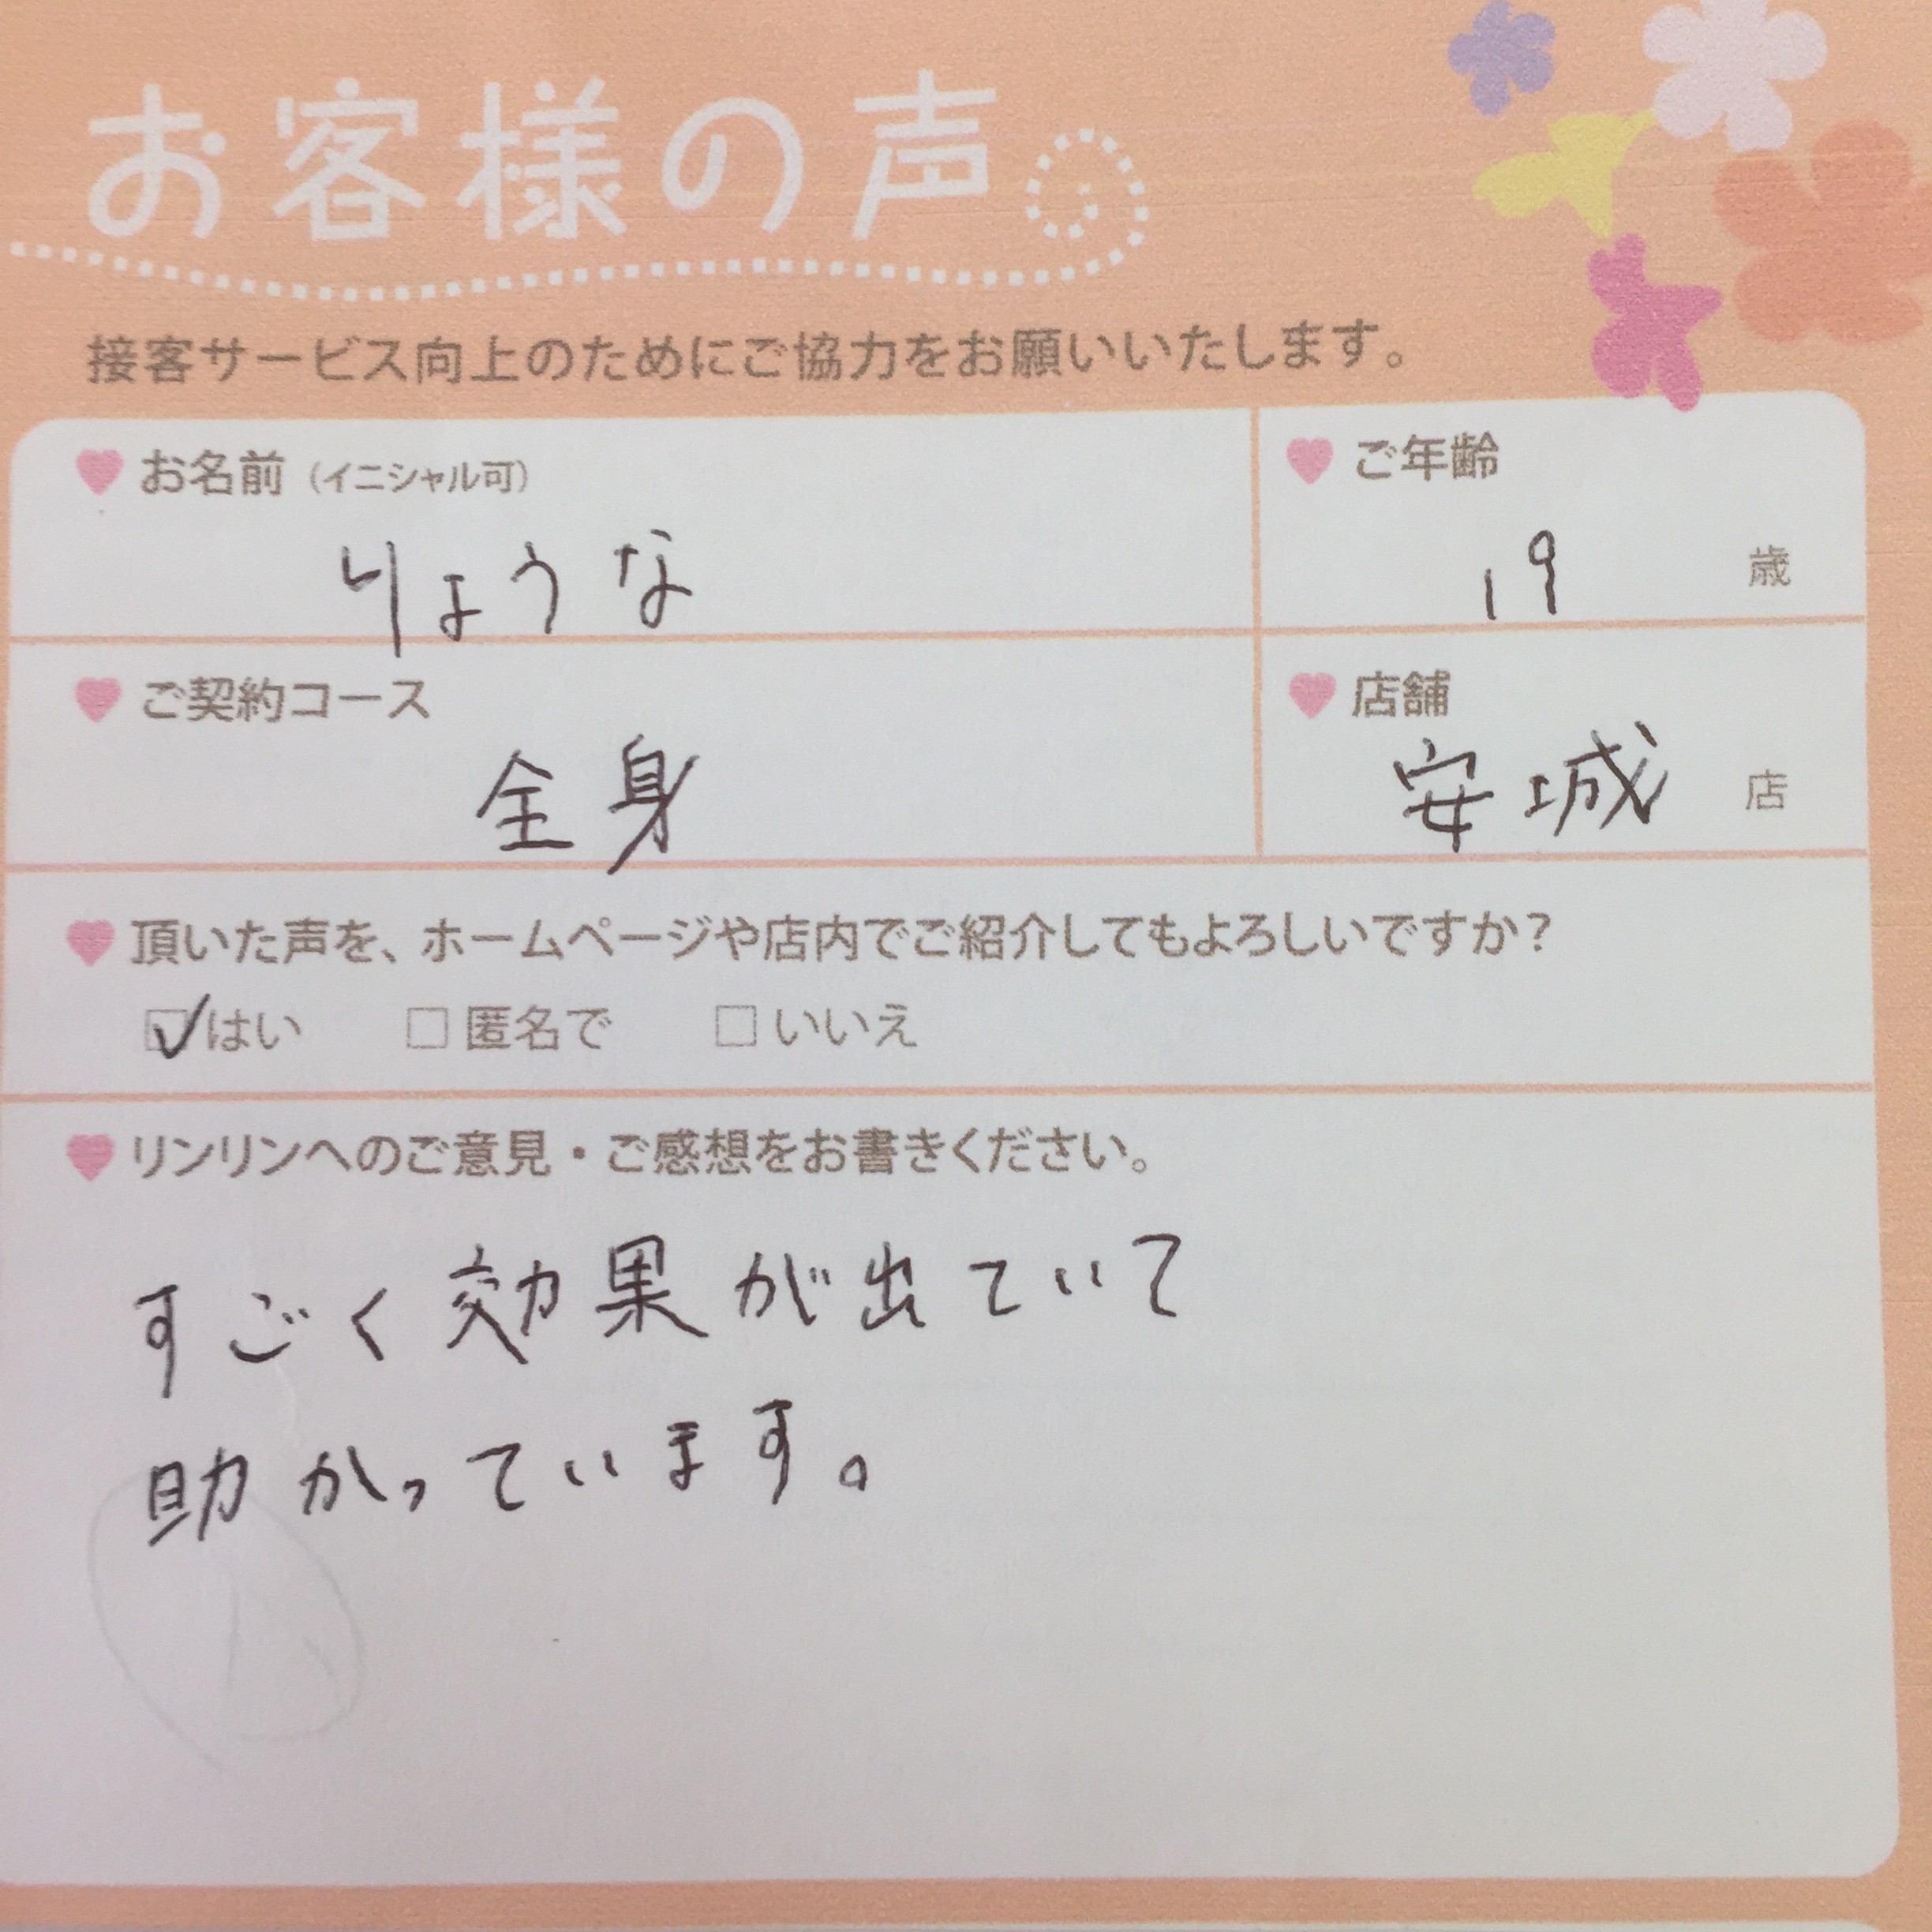 お客様の声。
接客サービス向上のためにご協力をお願いいたします。
お名前（イニシャル可）
りょうな
ご年齢
19 歳
ご契約コース
全身
店舗
安城 店
頂いた声を、ホームページや店内でご紹介してもよろしいですか？
はい 匿名で いいえ
リンリンへのご意見・ご感想をお書きください。
すごく効果が出ていて
助かっています。